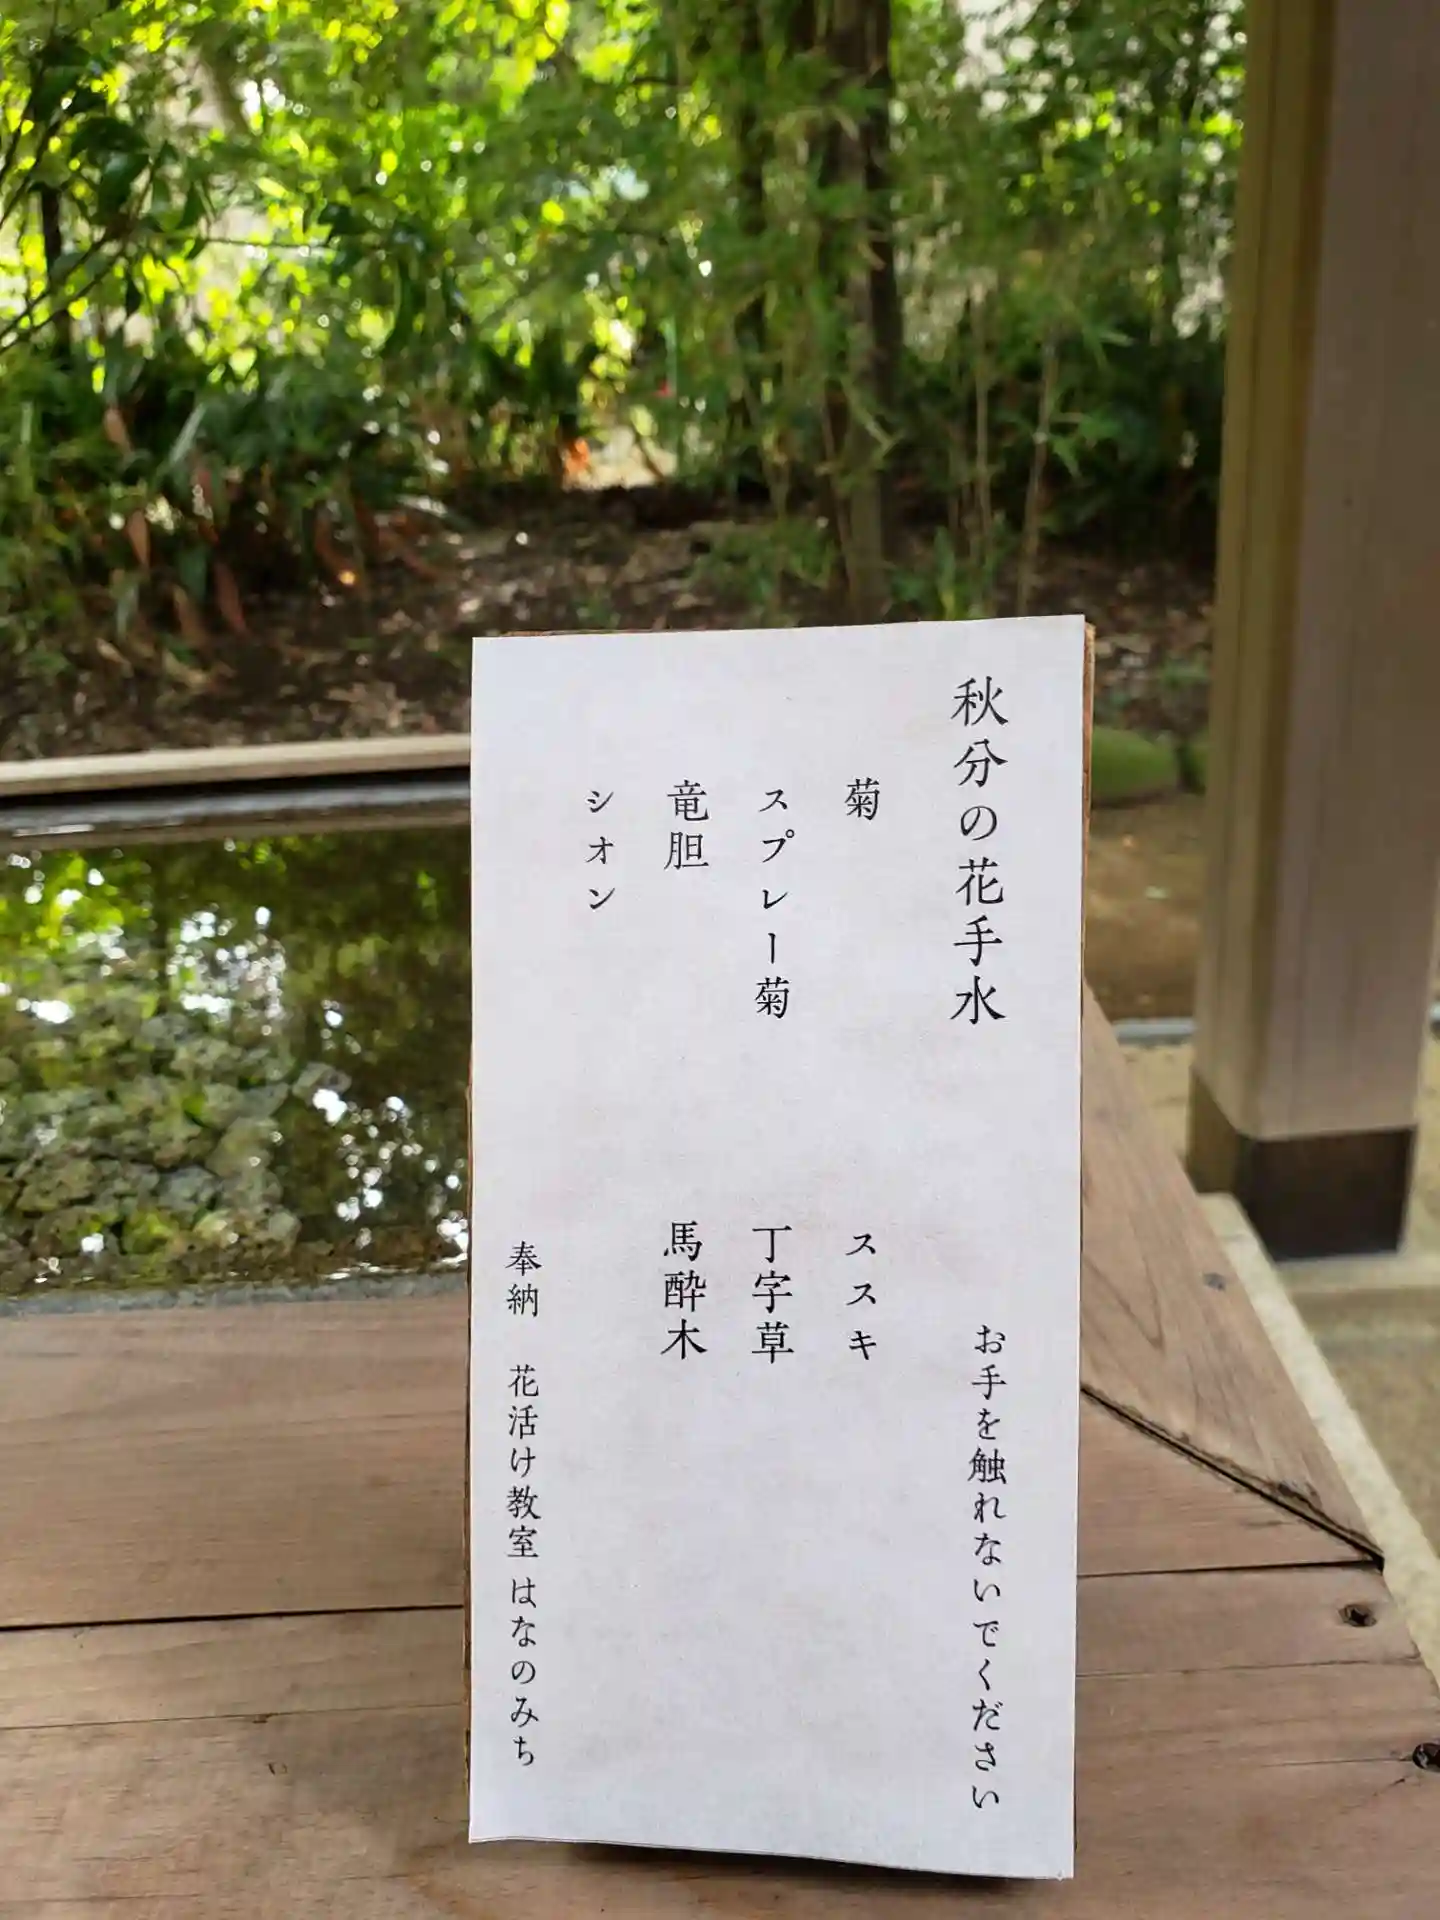 秋分の花手水
お手を触れないでください
菊
ススキ
スプレー菊
丁字草
竜胆
馬酔木
シオン
奉納 花活け教室 はなのみち